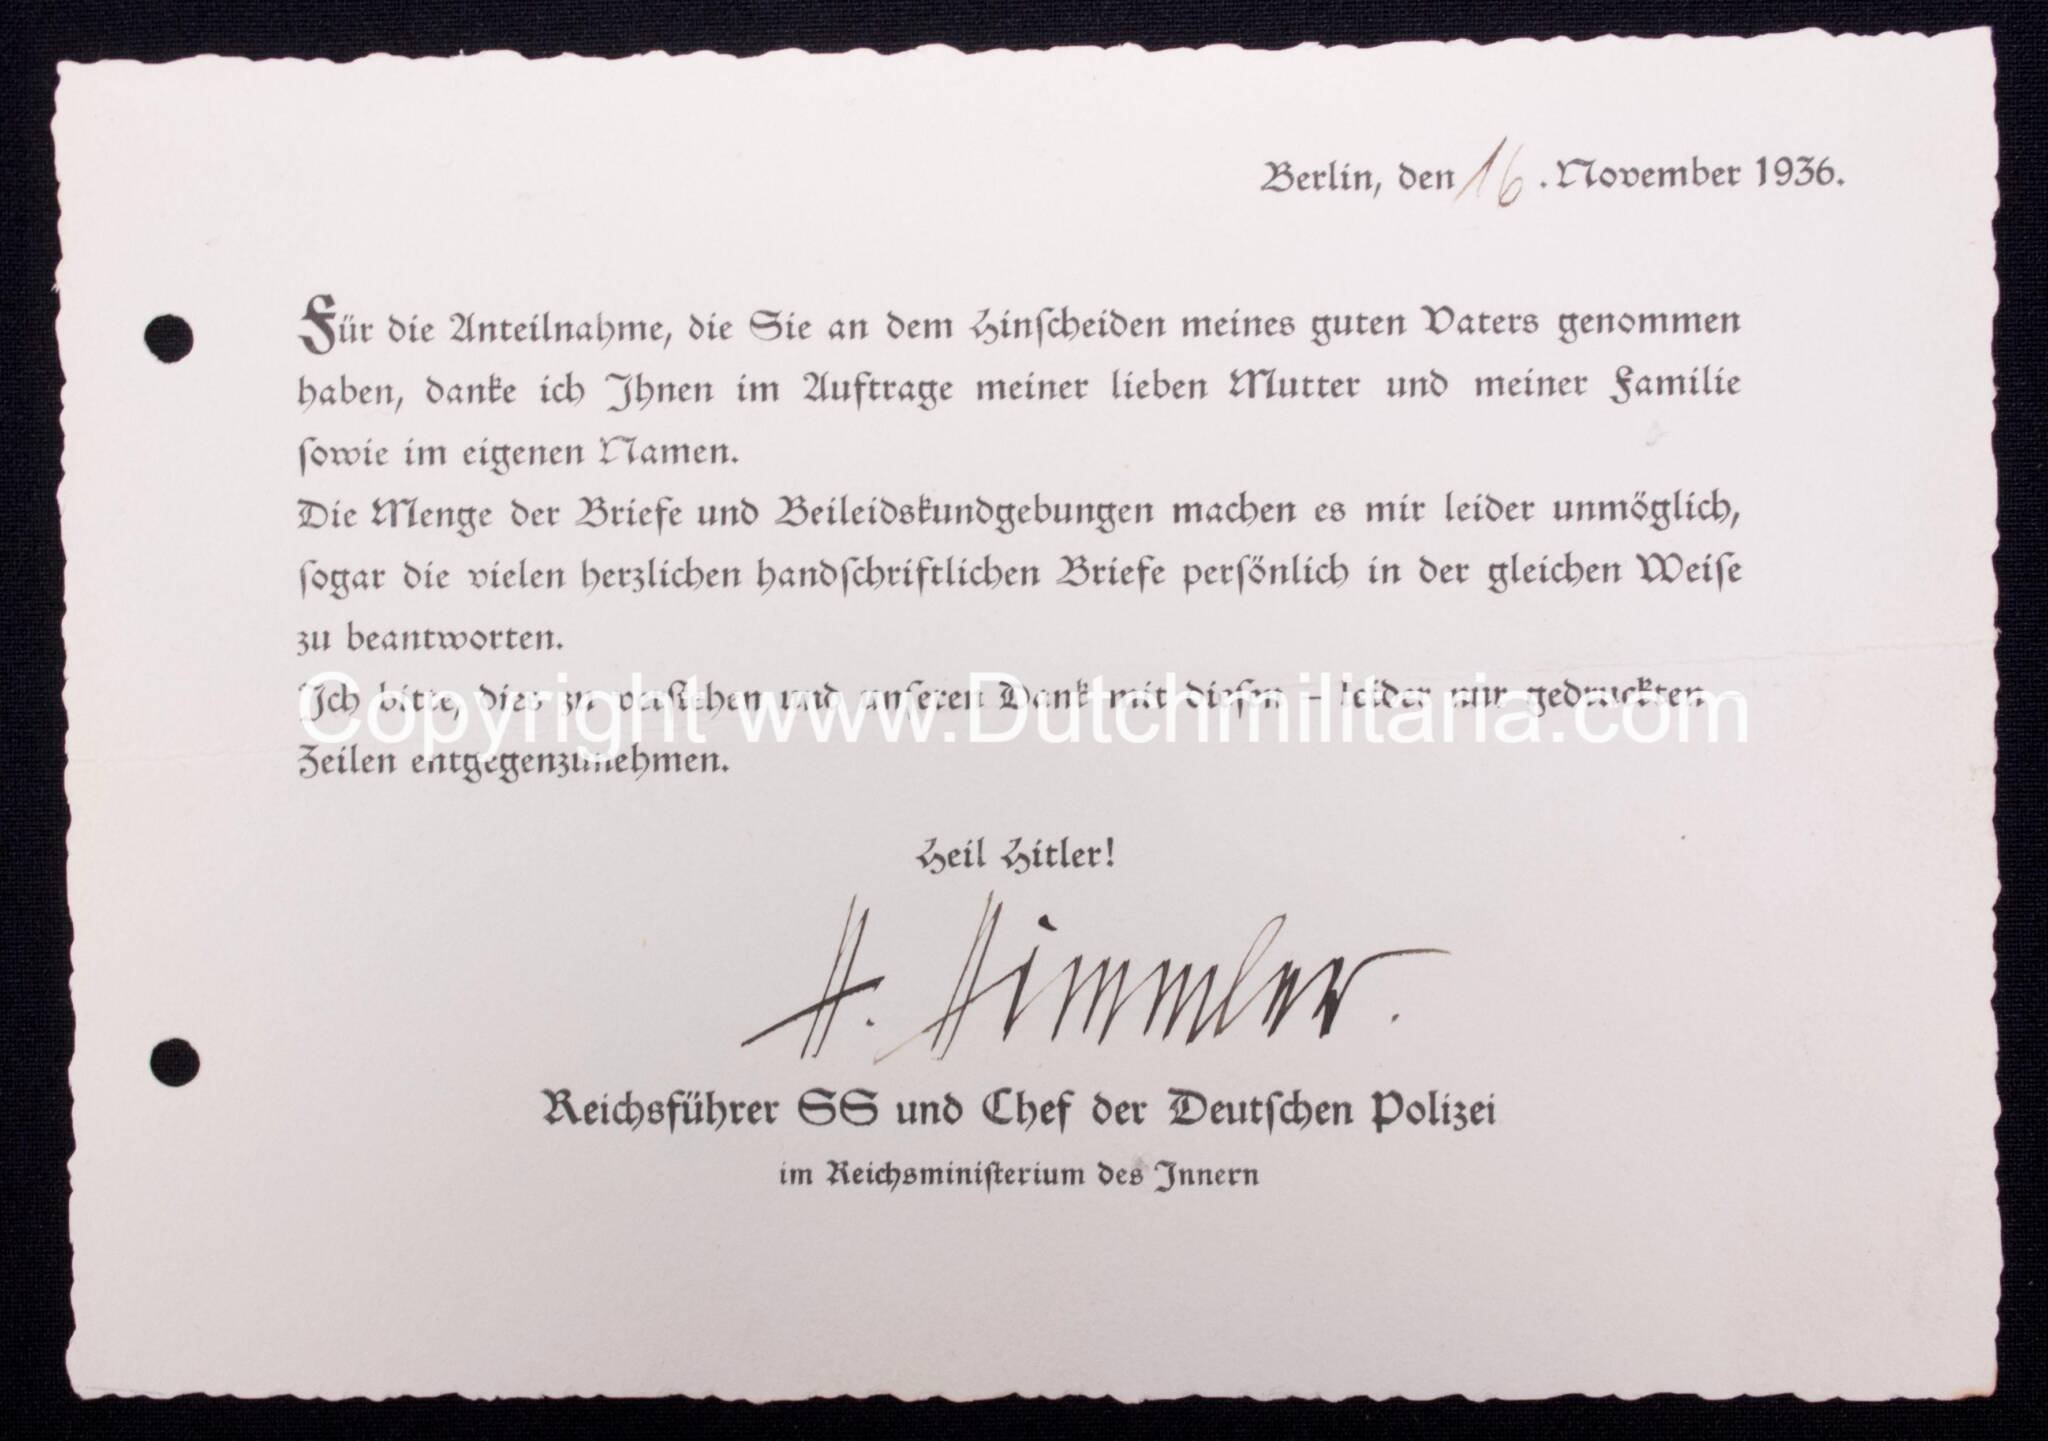 Berlin, den 16. November 1936.
Für die Anteilnahme, die Sie an dem Hinſcheiden meines guten Vaters genommen
haben, danke ich Ihnen im Auftrage meiner lieben Mutter und meiner Familie
ſowie im eigenen Namen.
Die Menge der Briefe und Beileidskundgebungen machen es mir leider unmöglich,
ſogar die vielen herzlichen handſchriftlichen Briefe perſönlich in der gleichen Weiſe
zu beantworten.
Ich bitte, dies zu verſtehen und unſeren Dank mit dieſen – leider nur gedruckten
Copyright www.Dutchmilitaria.com
Zeilen entgegenzunehmen.
Heil Hitler!
H. Himmler.
Reichsführer SS und Chef der Deutſchen Polizei
im Reichsminiſterium des Innern